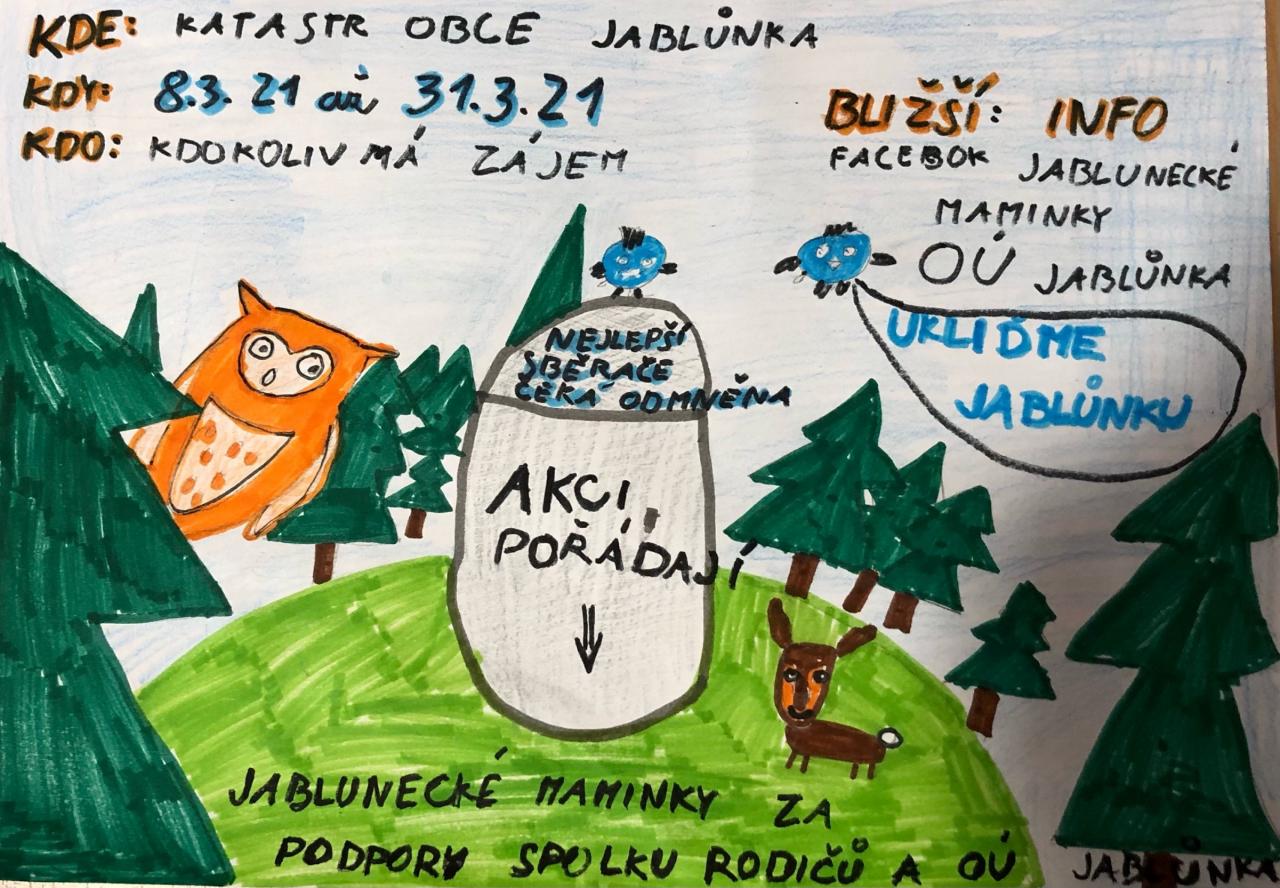 KDE: KATASTR OBCE JABLŮNKA
KDY: 8.3. 21 až 31.3.21
KDO: KDOKOLIV MÁ ZÁJEM
BLIŽŠÍ: INFO
FACEBOK JABLUNECKÉ
MAMINKY
OÚ JABLŮNKA
UKLIĎME
JABLŮNKU
NEJLEPŠÍ
SBĚRAČE
ČEKÁ ODMNĚNA
AKCI
POŘÁDAJÍ
JABLUNECKÉ MAMINKY ZA
PODPORY SPOLKU RODIČŮ A OÚ JABLŮNKA